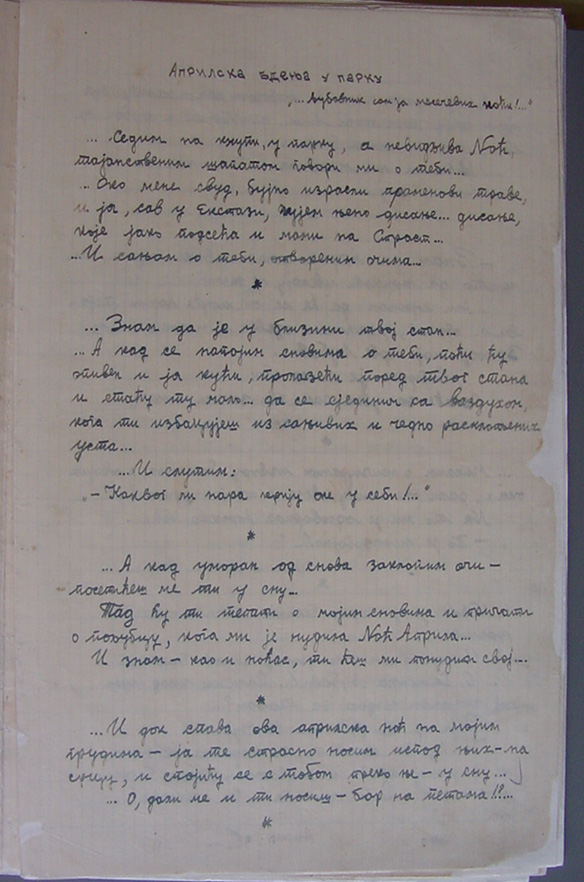 Априлска бдења у парку
„...љубавник сам ја месечевих ноћи!...“
... Седим на клупи, у парку, а невидљива Ноћ,
тајанственим шапатом говори ми о теби...
... Око мене свуд, бујно израсли праменови траве,
и ја, сав у екстази, чујем њено дисање... дисање,
које јако подсећа и мами на Страст...
...И сањам о теби, отвореним очима...
*
... Знам да је у близини твој стан...
... А кад се напојим сновима о теби, поћи ћу
опијен и ја кући, пролазећи поред твог стана
и стаћу ту мало... да се сјединим са ваздухом,
кога ти избацујеш из сањивих и чедно расклопљених
уста...
...И слутим:
„– Каквог ли чара крију оне у себи!...“
*
...А кад уморан од снова заклопим очи –
посетићеш ме ти у сну...
Тад ћу ти тепати о мојим сновима и причати
о пољубцу, кога ми је нудила Ноћ Априла...
И знам – као и ноћас, ти ћеш ми понудити свој...
*
...И док спава ова априлска ноћ на мојим
грудима – ја те страсно носим испод њих – на
срцу, и спојићу се с тобом преко ње – у сну...
... О, дали ме и ти носиш – бар на уснама!?...
*